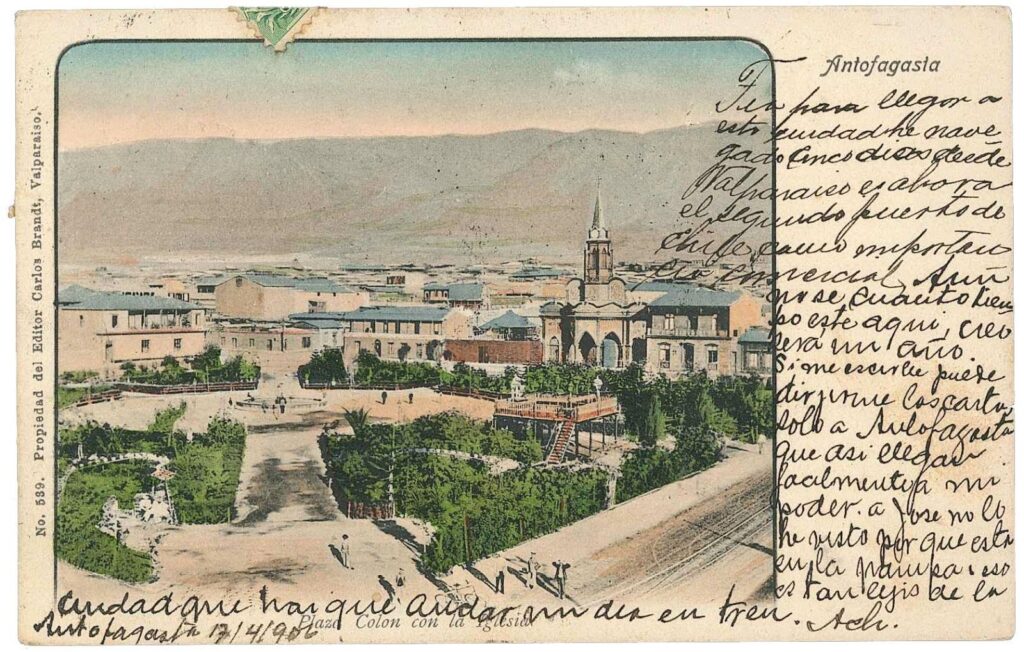 Antofagasta
Tia para llegar a
esta ciudad he nave
gado Cinco dias desde
Valparaiso es ahora
el segundo puerto de
Chile como importan
cia comercial, Aun
no se, cuanto tiem
po este aqui, creo
sera un año.
Si me escribe puede
dirjirme las carta
solo a Antofagasta
que asi llegan
facilmente a mi
poder. a Jose no lo
he visto porque esta
en la pampa i eso
es tan lejos de la
ciudad que hai que andar un dia en tren.
Ach.
Antofagasta 17/4/906
Plaza Colon con la Iglesia
No. 539. Propiedad del Editor Carlos Brandt, Valparaiso.